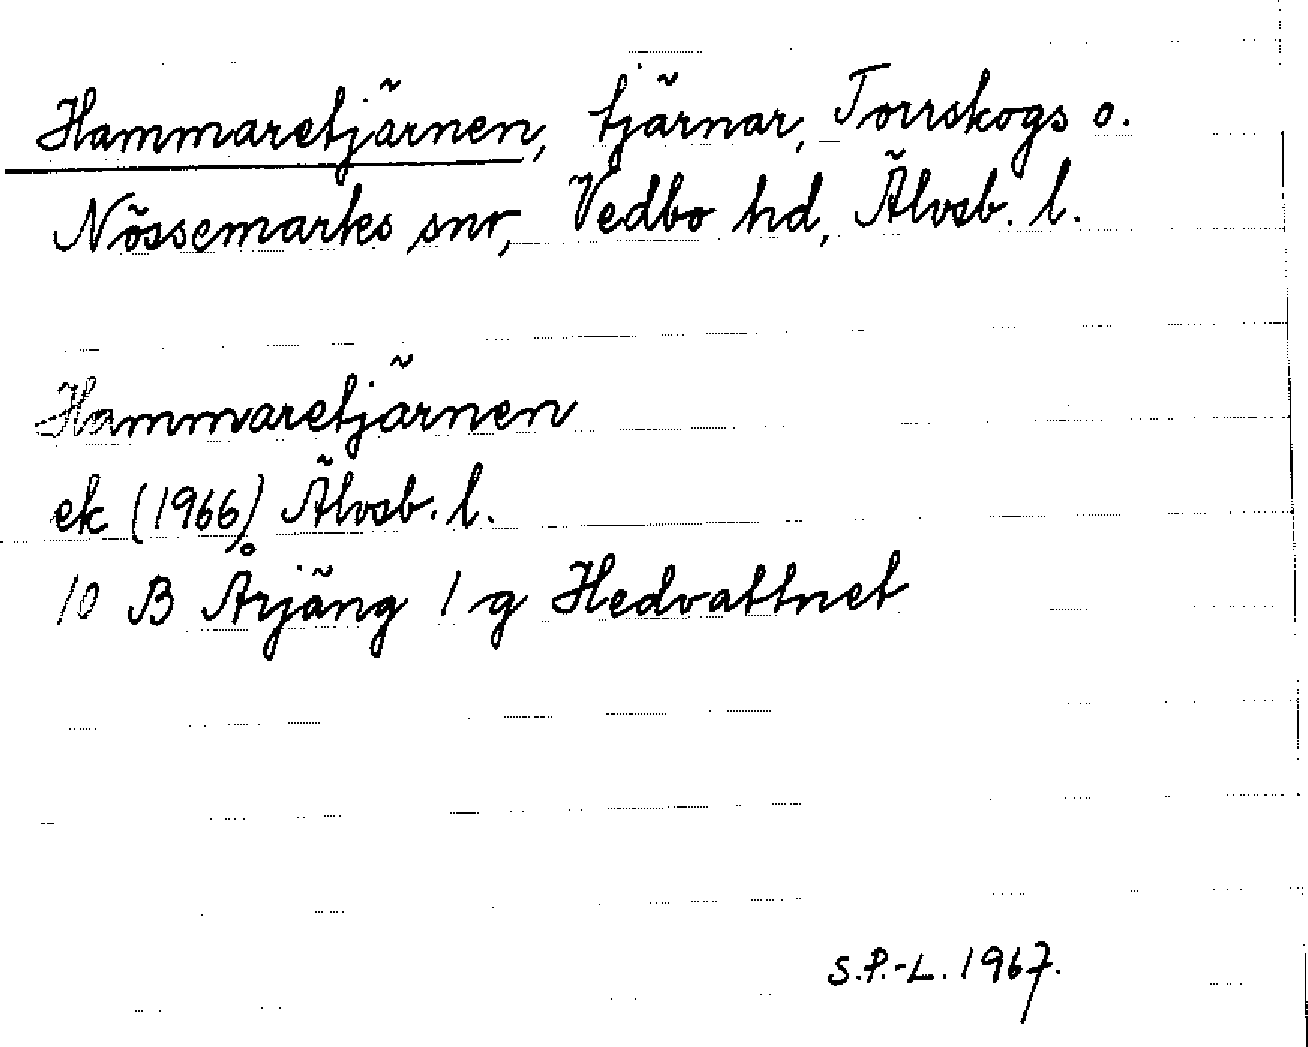 Hammaretjärnen, tjärnar, Torrskogs o.
Nössemarks snr, Vedbo hd, Älvsb. l.
Hammaretjärnen
ek (1966) Älvsb. l.
10 B Årjäng 1 g Hedvattnet
S.P.-L. 1967.